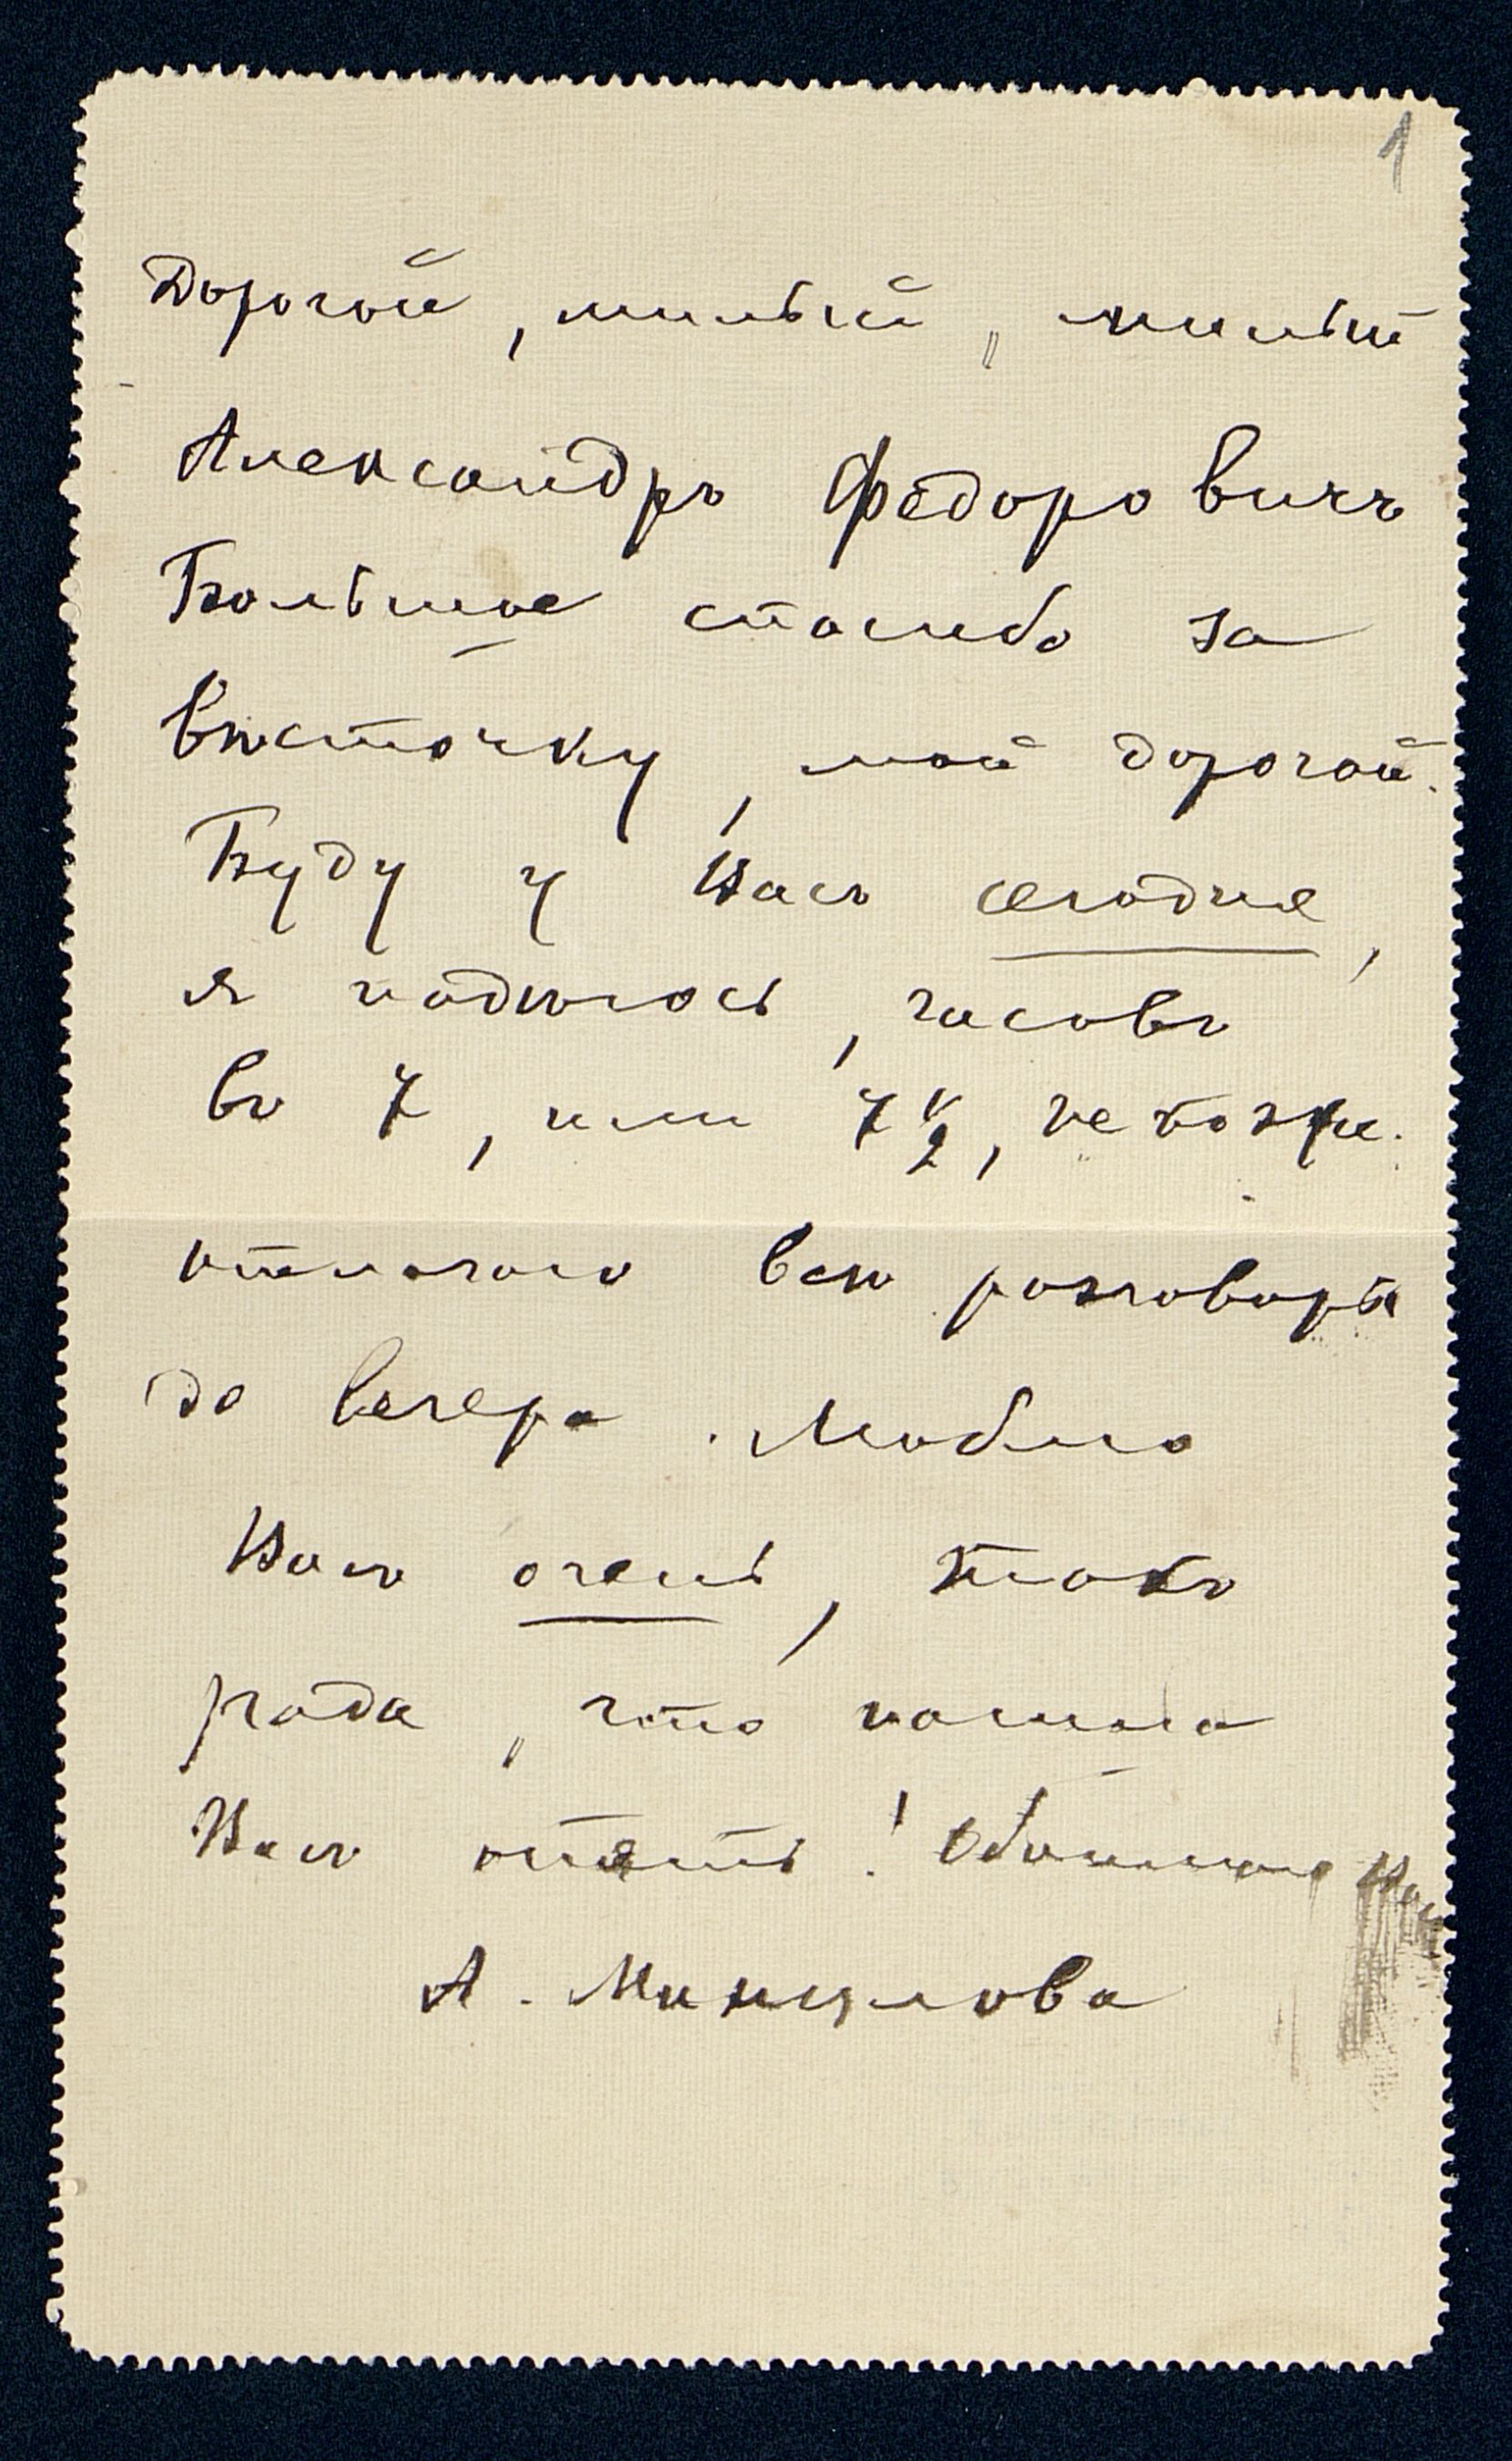 1
Дорогой, милый, милый
Александръ Федоровичъ
Большое спасибо за
вѣсточку, мой дорогой.
Буду у Васъ сегодня,
я надѣюсь, часовъ
въ 7, или 7 ½, не позже.
отлагаю всѣ разговоры
до вечера. Люблю
Васъ очень, такъ
рада, что нашла
Васъ опять! Обнимаю Васъ
А. Минцлова